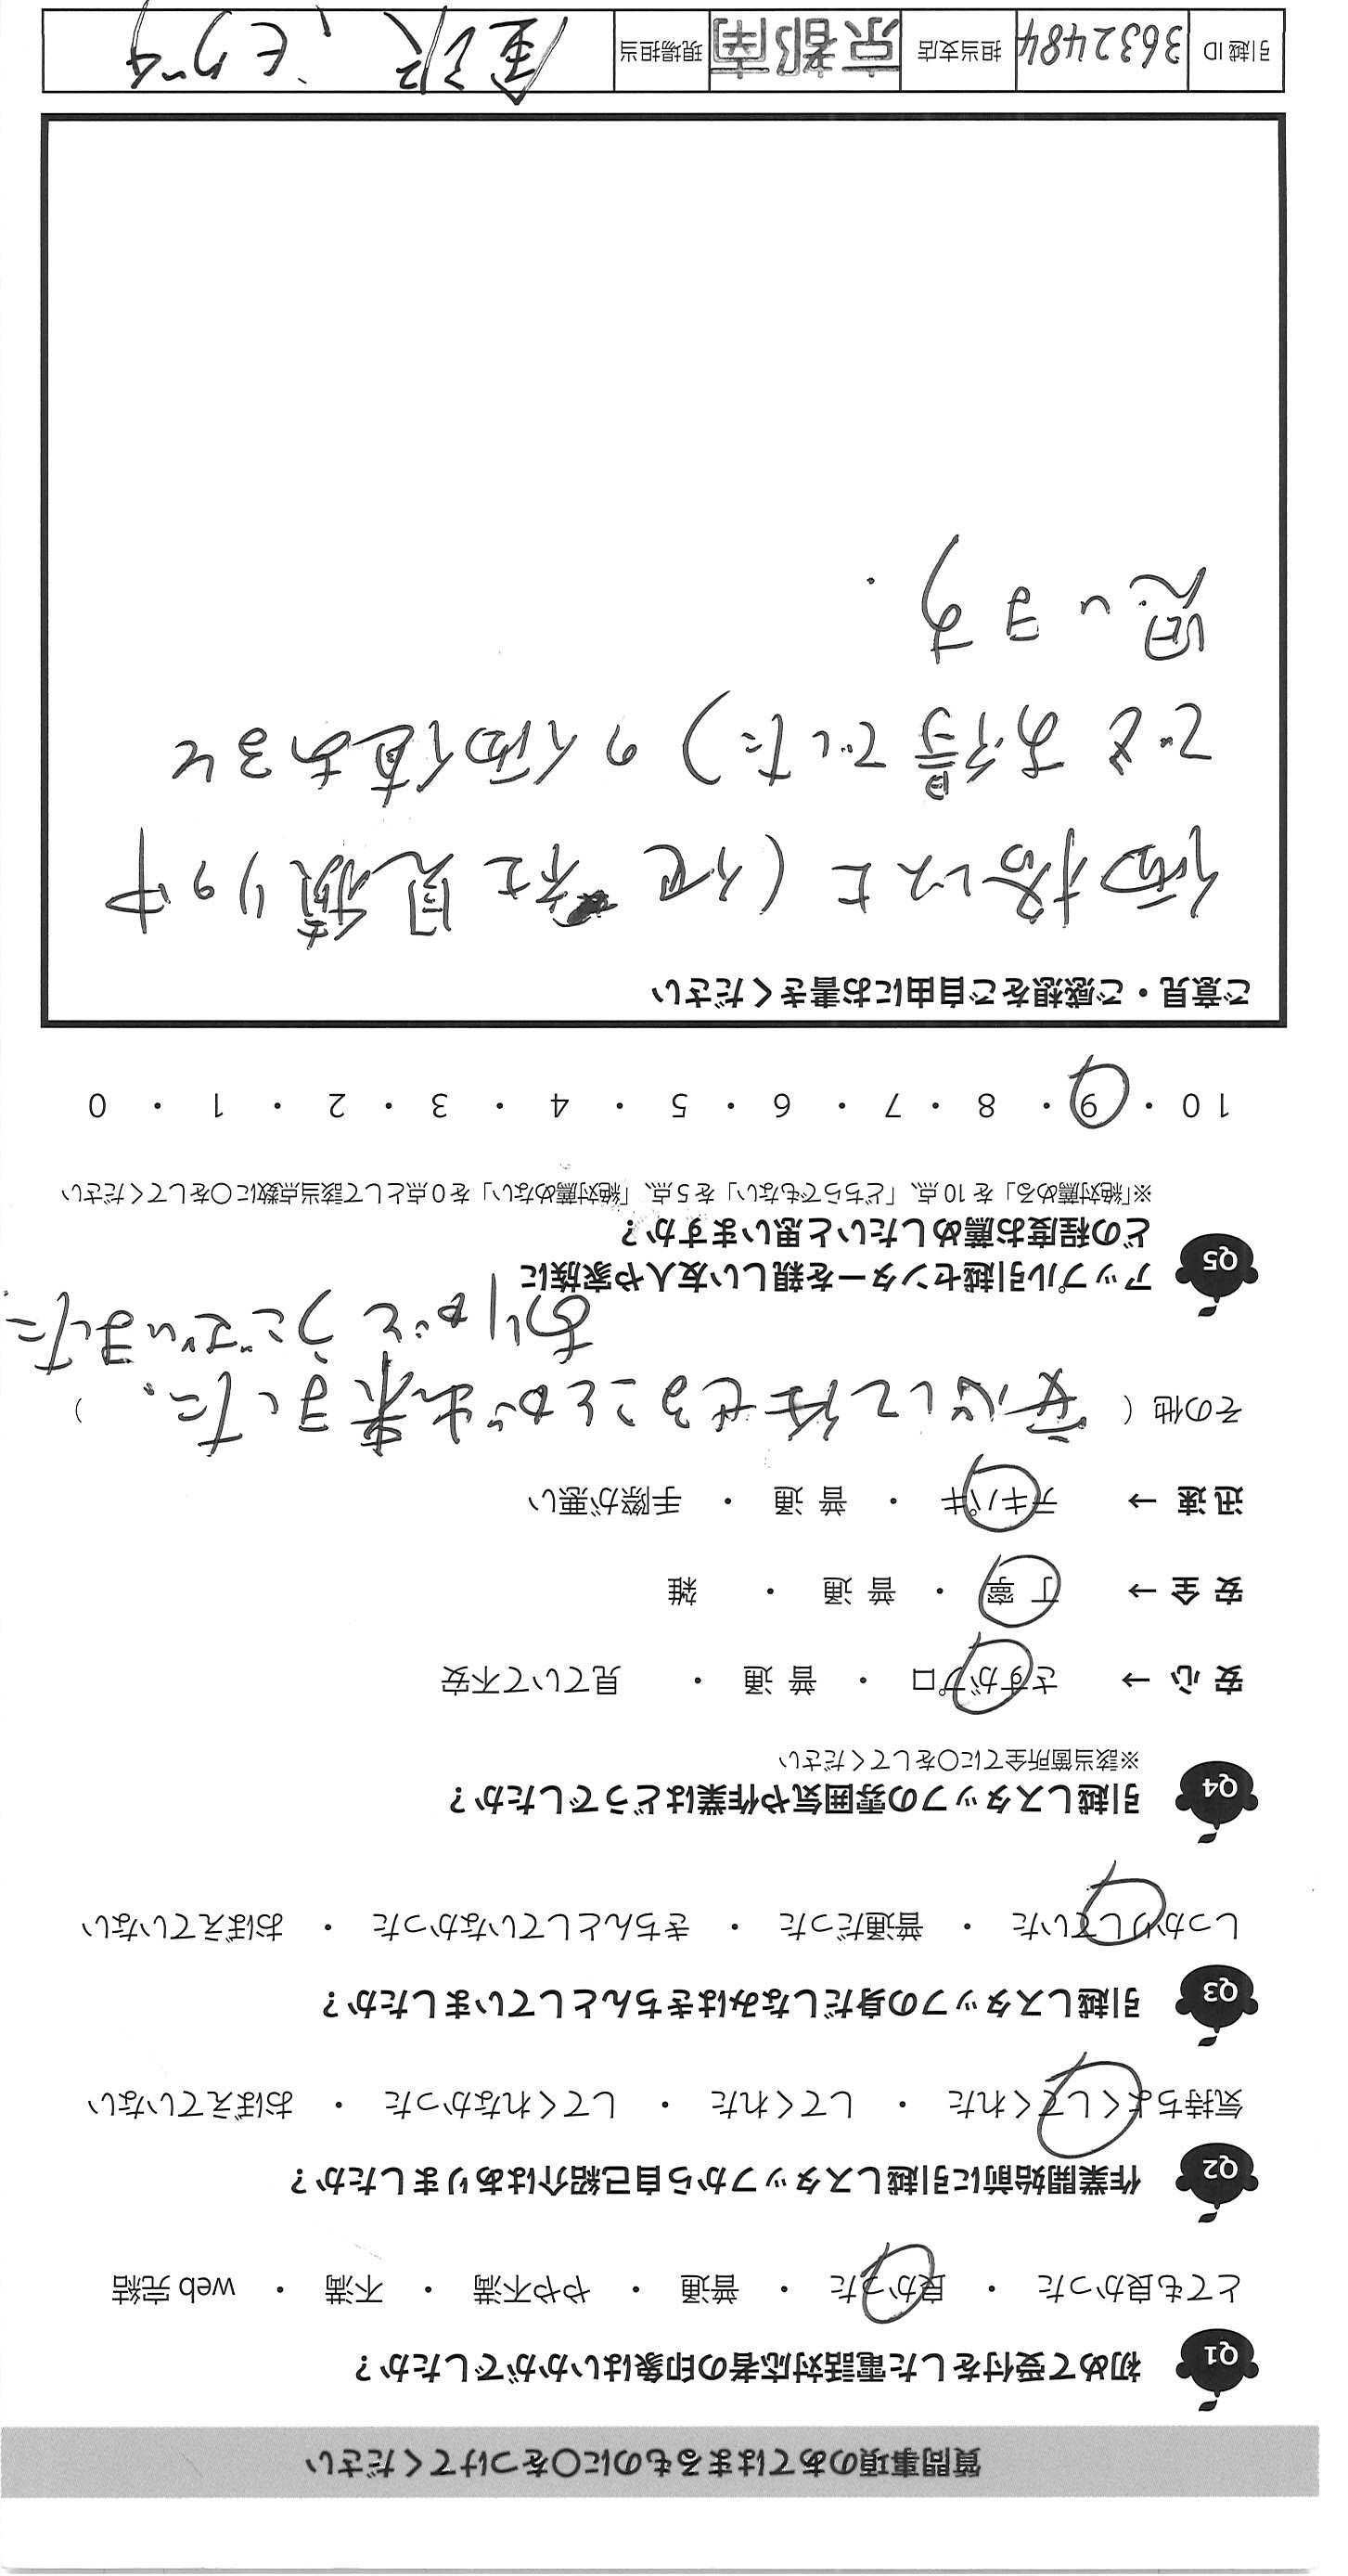 質問事項のあてはまるものに〇をつけてください
Q1 初めて受付をした電話対応者の印象はいかがでしたか？
とても良かった ・ 良かった ・ 普通 ・ やや不満 ・ 不満 ・ web 完結
Q2 作業開始前に引越しスタッフから自己紹介はありましたか？
気持ちよくしてくれた ・ してくれた ・ してくれなかった ・ おぼえていない
Q3 引越しスタッフの身だしなみはきちんとしていましたか？
しっかりしていた ・ 普通だった ・ きちんとしていなかった ・ おぼえていない
Q4 引越しスタッフの雰囲気や作業はどうでしたか？
※該当箇所全てに〇をしてください
安 心 → さすがプロ ・ 普 通 ・ 見ていて不安
安 全 → 丁 寧 ・ 普 通 ・ 雑
迅 速 → テキパキ ・ 普 通 ・ 手際が悪い
その他 ( 安心して任せることが出来ました。 )
ありがとうございました。
Q5 アップル引越センターを親しい友人や家族に
どの程度お薦めしたいと思いますか？
※「絶対薦める」を 10 点、「どちらでもない」を 5 点、「絶対薦めない」を 0 点として該当点数に〇をしてください
10 ・ 9 ・ 8 ・ 7 ・ 6 ・ 5 ・ 4 ・ 3 ・ 2 ・ 1 ・ 0
ご意見・ご感想をご自由にお書きください
価格以上(他社見積りの中
でもお得でした)の価値あると
思います.
引越 ID 3632484 担当支店 京都南 現場担当